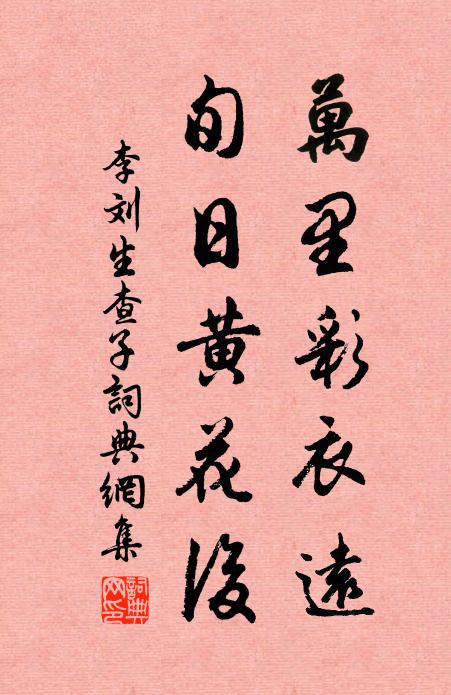 萬里彩衣遠
旬日黄花後
李刘生查子詞典網集
詞典網印